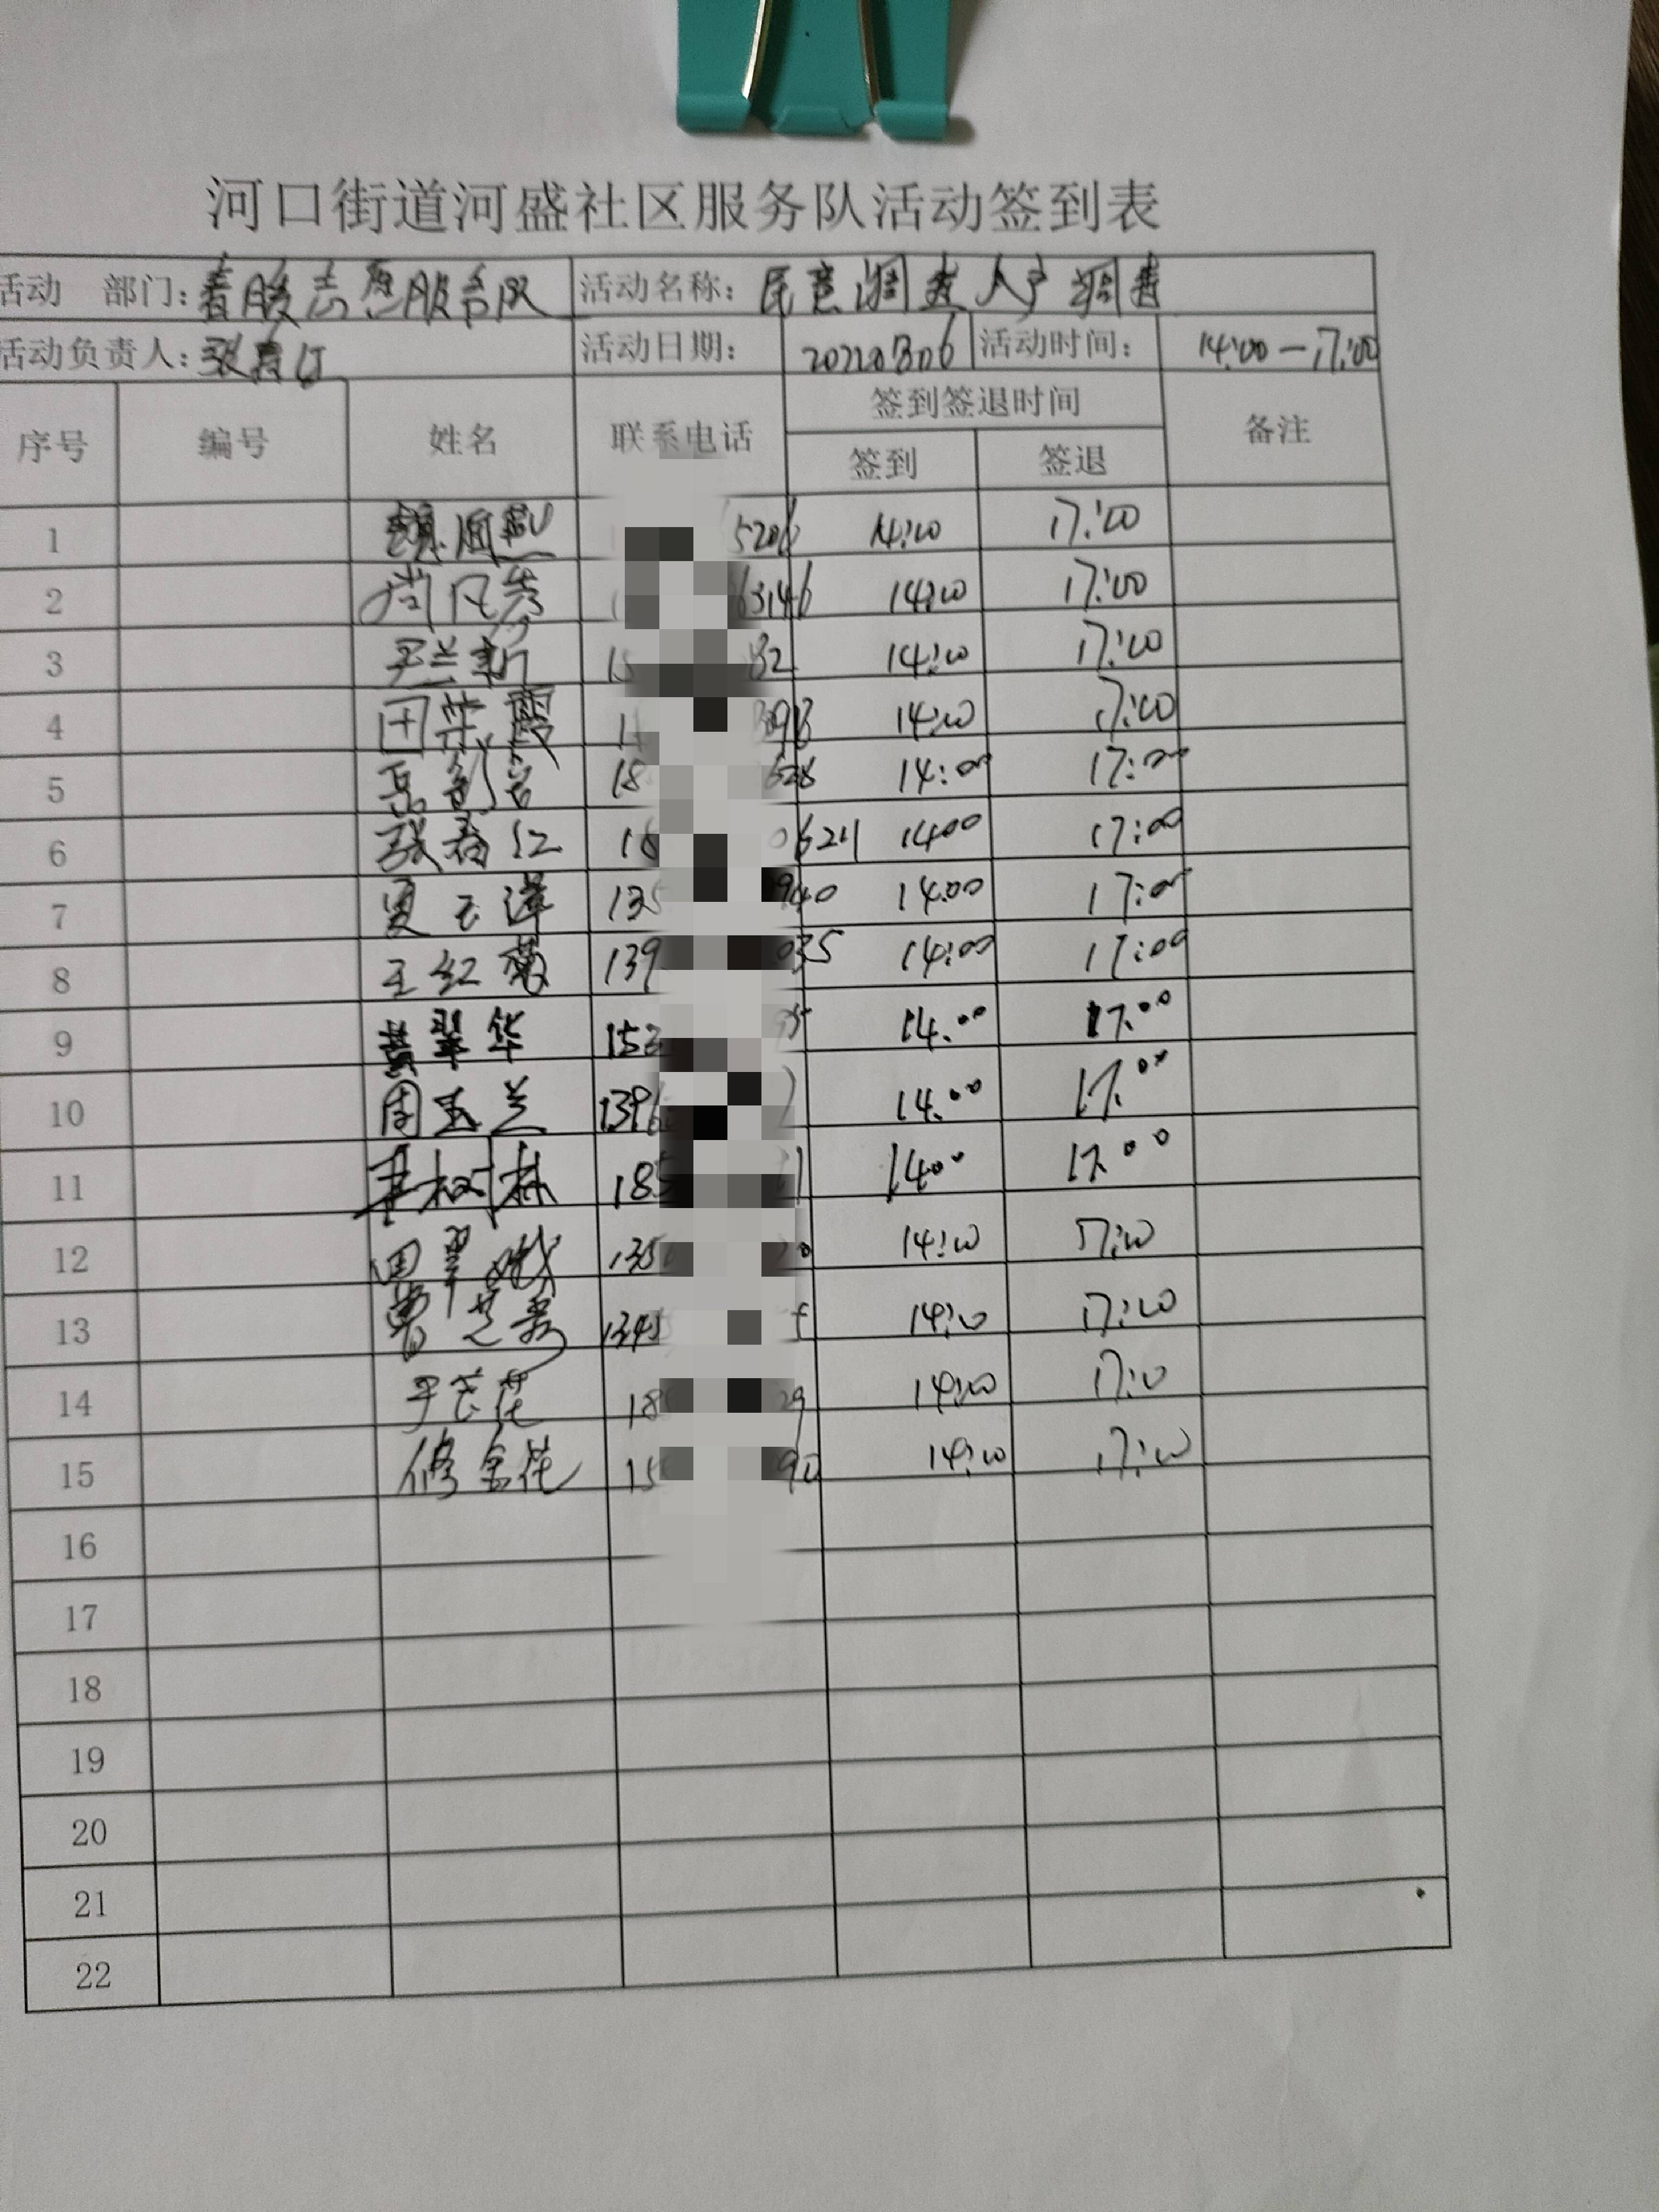 河口街道河盛社区服务队活动签到表
活动 部门：春暖志愿服务队 活动名称：民意调查入户调查
活动负责人：张春红 活动日期： 活动时间： 14:00—17:00
序号 编号 姓名 联系电话 签到签退时间 备注
签到 签退
1 14:00 17:00
2 尚凤芳 14:00 17:00
3 兰新 14:00 17:00
4 田荣霞 14:00 17:00
5 14:00 17:00
6 张春红 14:00 17:00
7 夏玉萍 135 940 14:00 17:00
8 王红菊 139 035 14:00 17:00
9 黄翠华 153 14.00 17.00
10 周玉兰 1396 14.00 17.00
11 185 1400 17.00
12 周翠娥 135 14:00 17:00
13 曹芝秀 1345 14:00 17:00
14 于花 18 29 14:00 17:00
15 修金花 15 90 14:00 17:00
16
17
18
19
20
21
22